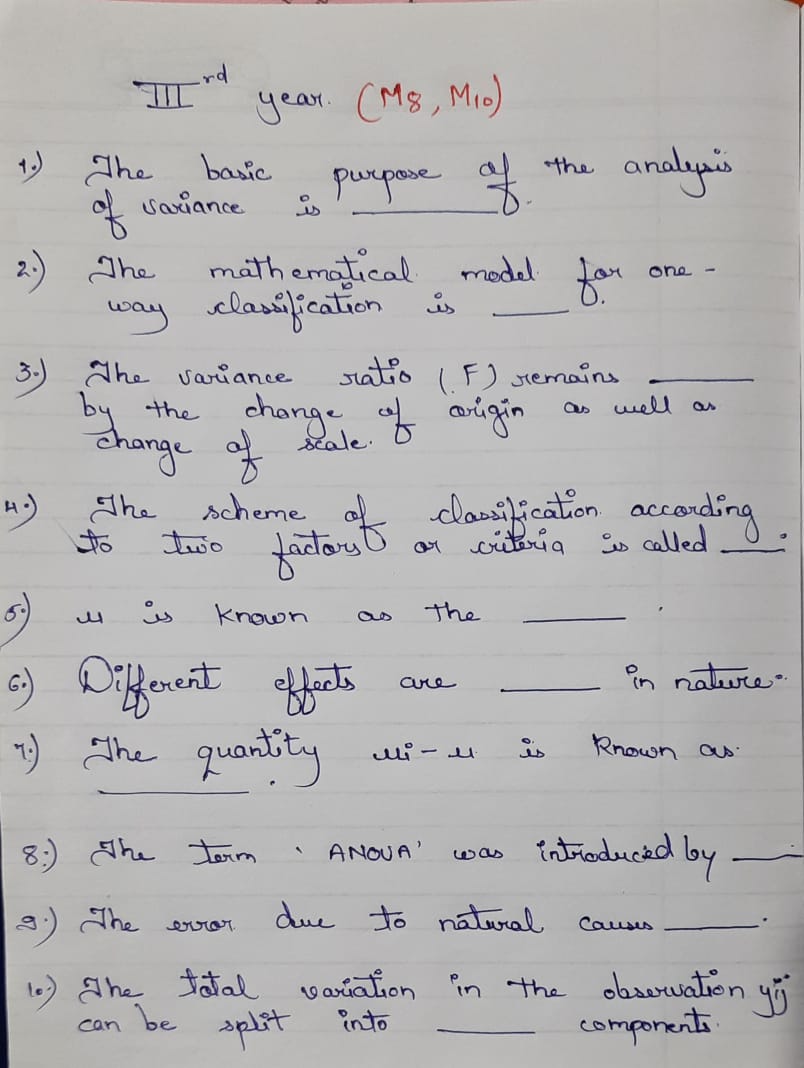 IIIrd year. (M8, M10)
1.) The basic purpose of the analysis
of variance is ________.
2.) The mathematical model for one-
way classification is ____.
3.) The variance ratio (F) remains ______
by the change of origin as well as
change of scale.
4.) The scheme of classification according
to two factors or criteria is called ____.
5.) μ is known as the ______.
6.) Different effects are ______ in nature.
7.) The quantity μi-μ is known as
________.
8.) The term 'ANOVA' was introduced by ____.
9.) The error due to natural causes ______.
10.) The total variation in the observation yij
can be split into ______ components.